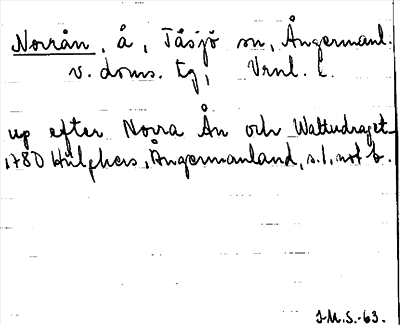 Norrån, å, Tåsjö sn, Ångermanl.
v. doms. tg, Vrnl. l.
up efter Norra Ån och Wattudraget
1780 Hülphers, Ångermanland, s. 1, not b.
J.M.S.-63.